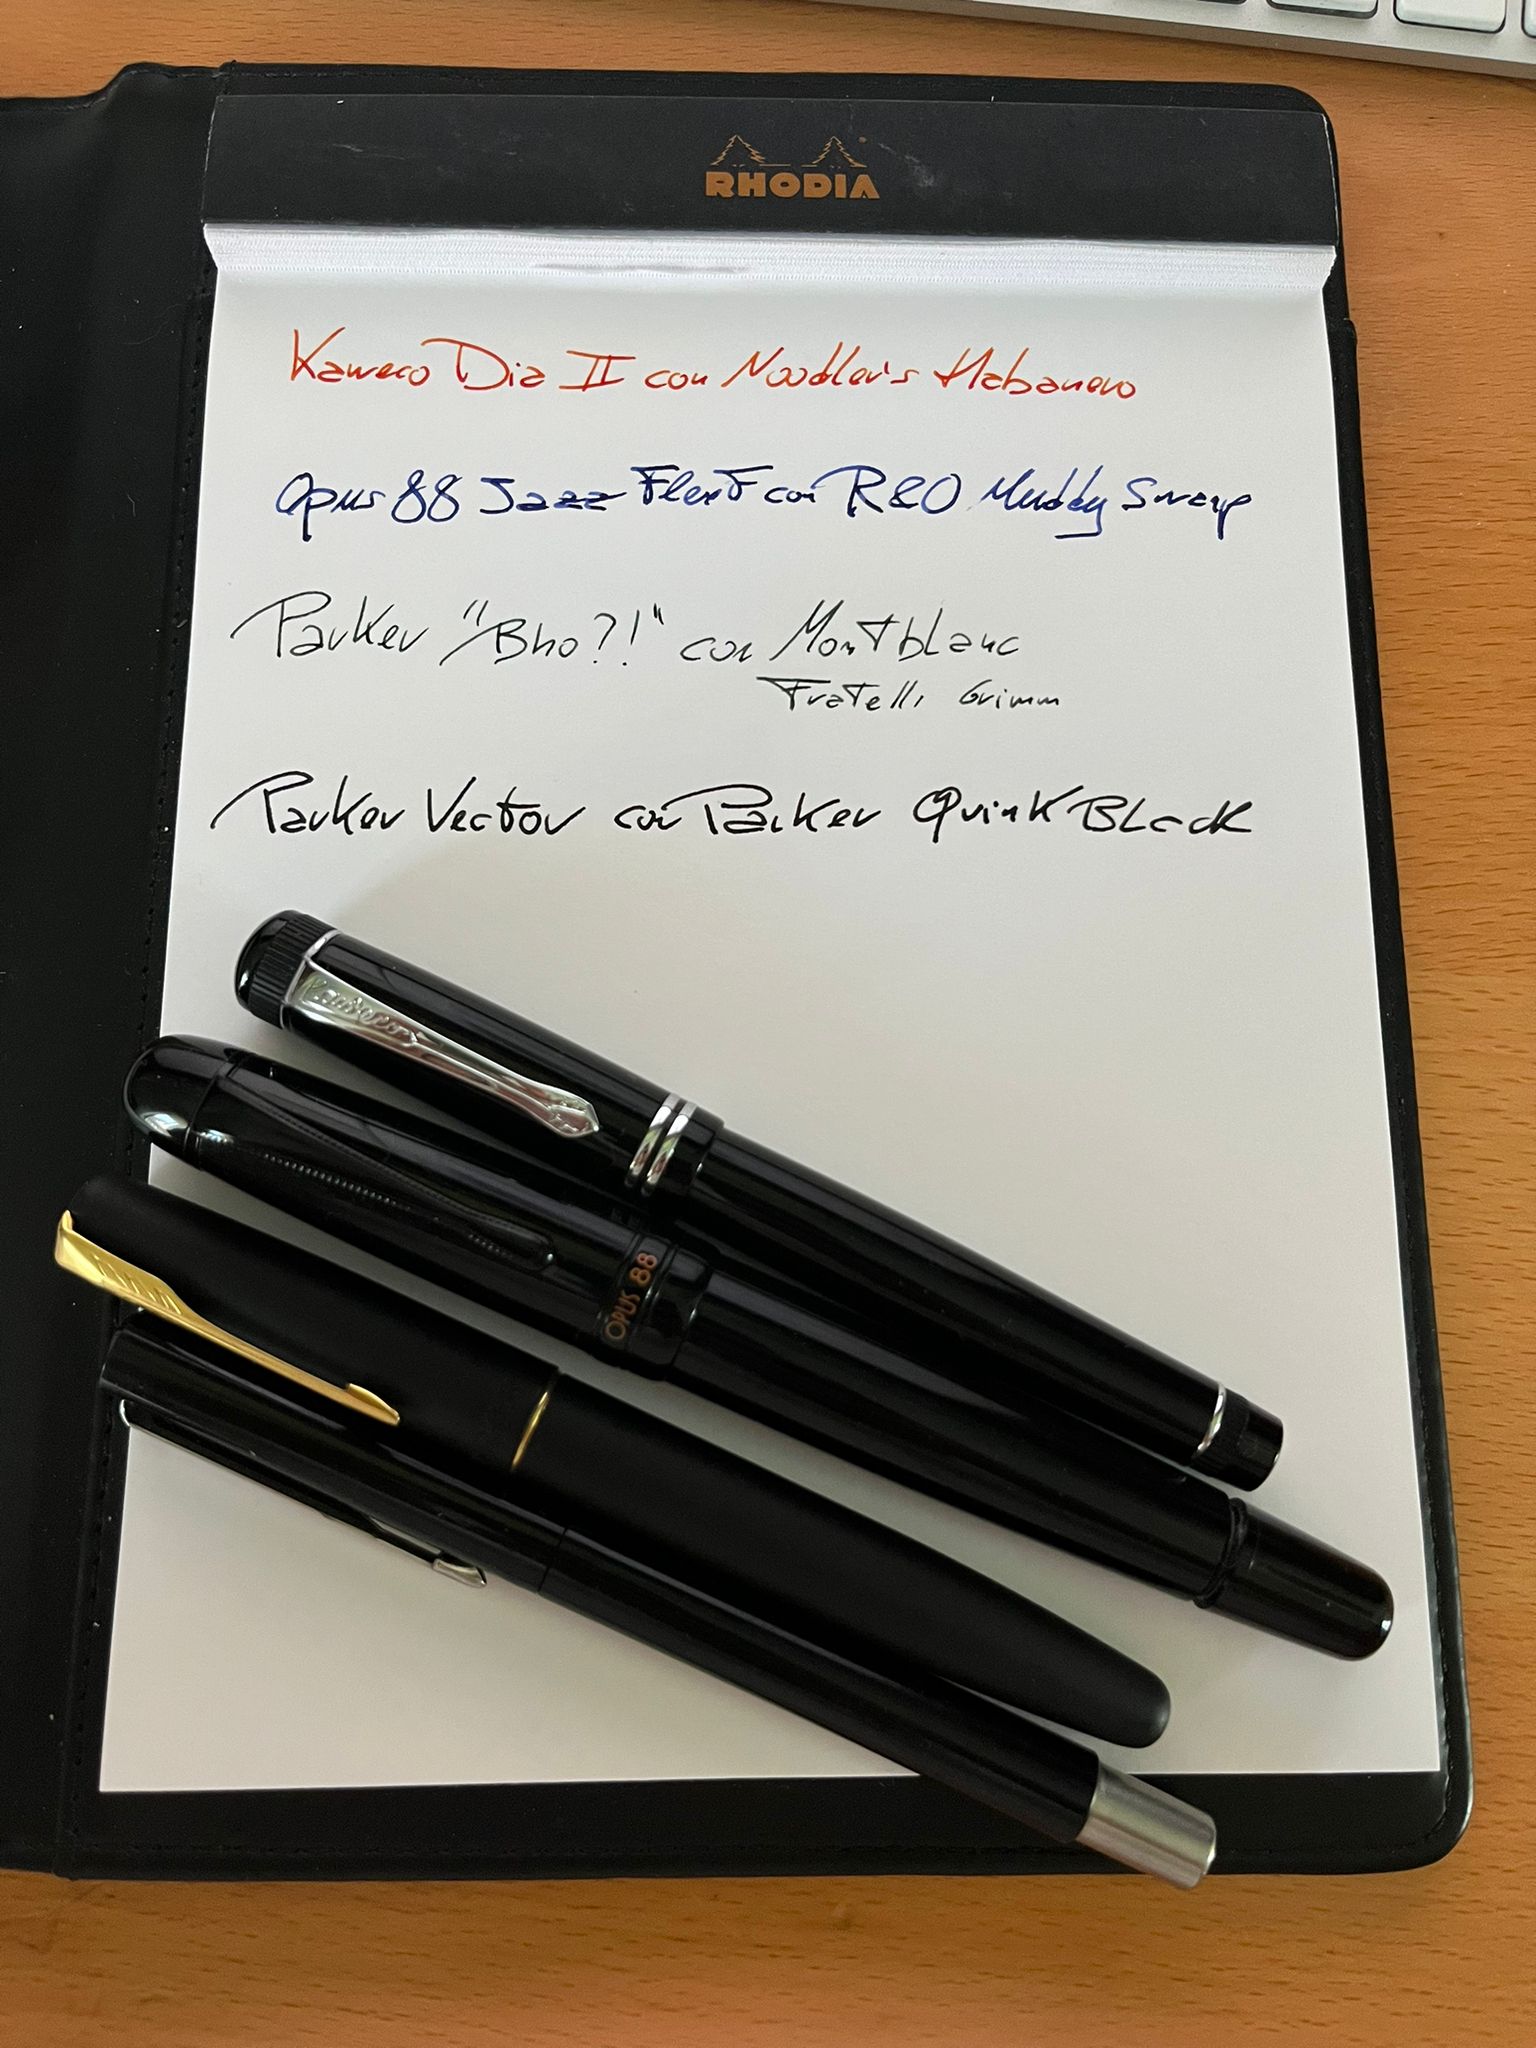 RHODIA
Kaweco Dia II con Noodler's Habanero
Opus 88 Jazz Flex F con R&O Muddy Swamp
Parker "Bho?!" con Montblanc
Fratelli Grimm
Parker Vector con Parker Quink Black
Kaweco
OPUS 88